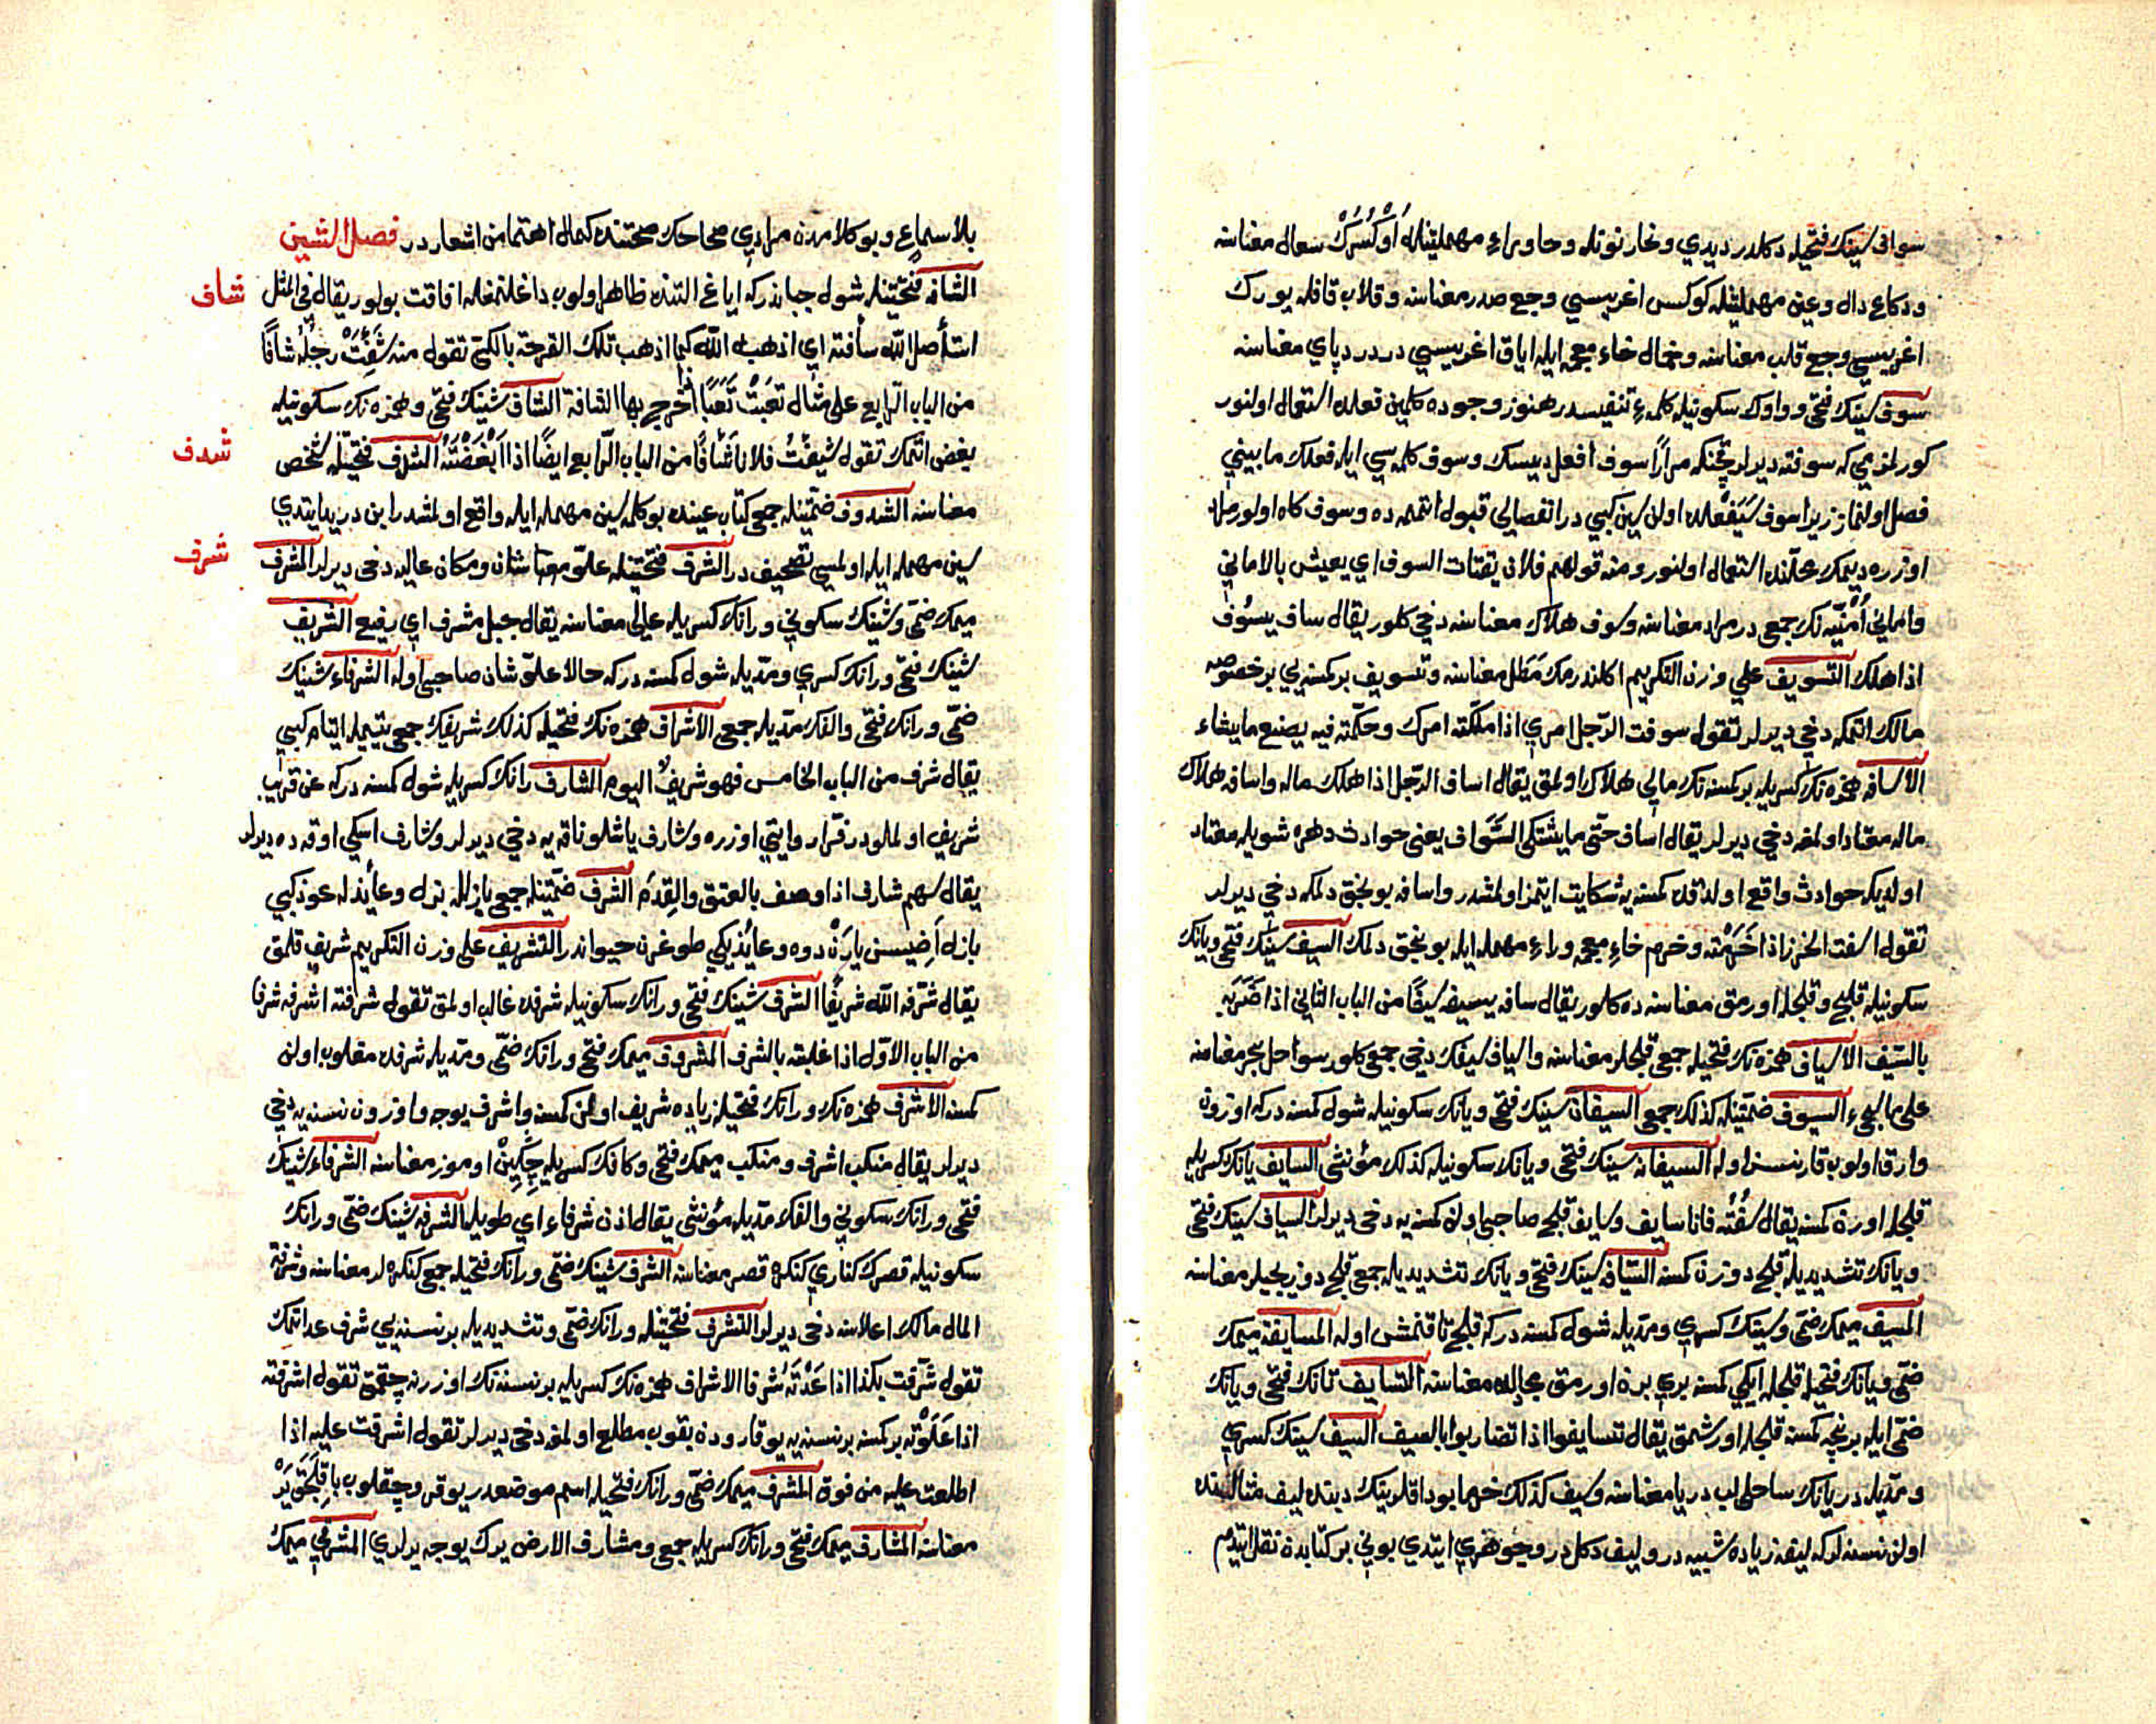 سواف سينك فتحيله دكلدر ديدي ونحاز نونله وحا وراء مهملتينله اُوكْسُرُكْ سعال معناسنه
ودكاع دال وعين مهملتينله كوكس اغريسي وجع صدر معناسنه وقلاب قافله يورك
اغريسي وجع قلب معناسنه وخمال خاء معجمه ايله اياق اغريسي در درد پاى معناسنه
سوف سينك فتحى وواوك سكونيله كلمهٔ تنفيسدر هنوز وجوده كلمين فعلده استعمال اولنور
كورلمزمى كه سوفته ديرلر قچنكه مرارًا سوف افعل ديسك وسوف كلمه سي ايله فعلك مابيني
فصل اولنماز زيرا سوف سَيَفْعَلُده اولن سين كبي در انفصالى قبول ائتمه ده وسوف كاه اولور مراد
اوزره ديمك محلنده استعمال اولنور ومنه قولهم فلان يقتات السوف اي يعيش بالاماني
واماني اُمنيّه نك جمعى در مراد معناسنه وسوف هلاك معناسنه دخي كلور يقال ساف يسوُف
اذا هلك التسويف على وزن التكريم اكلندرمك مَطل معناسنه وتسويف بر كمسنه يي بر خصوصه
مالك اتمكه دخي ديرلر تقول سوفت الرّجل امري اذا ملّكته امرك وحكّمته فيه يصنع ما يشاء
الاسافه همزه نك كسريله بر كمسنه نك مالى هلاك اولمق يقال اساف الرّجل اذا هلك ماله واسافه هلاك
ماله معتاد اولمغه دخي ديرلر يقال اساف حتّى ما يشتكى السَّواف يعنى حوادث دهره شويله معتاد
اولديكه حوادث واقع اولدقده كمسنه يه شكايت ايتمز اولمشدر واسافه بونجق دلمكه دخي ديرلر
تقول اسفت الخرز اذا اخَرمْته وخرم خاءِ معجمه وراءِ مهمله ايله بونجق دلمك السيف سينك فتحى ويانك
سكونيله قليج وقليجله اورمق معناسنه ده كلور يقال سافه يسيفه سيفًا من الباب الثاني اذا ضَرَبَه
بالسّيف الاسياف همزه نك فتحيله جمعى قليجلر معناسنه واسياف سيفك دخي جمعى كلور سواحل بحر معناسنه
على ما يجيء السيوف ضمّتينله كذلك جمعى السيفان سينك فتحى ويانك سكونيله شول كمسنه دركه اوزون
وارق اولوب قارنسز اوله السيفانه سينك فتحى ويانك سكونيله كذلك مؤنثى السايف يانك كسريله
قليجله اورن كمسنه يقال سُفْتُه فانا سايف وسايف قليج صاحبى اولن كمسنه يه دخي ديرلر السياف سينك فتحى
ويانك تشديديله قليج دوزن كمسنه السيّافه سينك فتحى ويانك تشديديله جمعى قليج دوزيجيلر معناسنه
المسيف ميمك ضمّى وسينك كسري ومدّيله شول كمسنه دركه قليج تاقنمش اوله المسايفة ميمك
ضمّى ويانك فتحيله قليجله ايكي كمسنه بري برن اورمق مجالده معناسنه التسايف تانك فتحى ويانك
ضمّى ايله بر نچه كمسنه قليجله اورشمق يقال تسايفوا اذا تضاربوا بالسيف السيف سينك كسري
ومدّيله دريانك ساحلى لب دريا معناسنه وسيف كذلك خرما بوداقلرينك ديبنده ليف مثاللينده
اولن نسنه لركه ليفه زياده شبيه در وليف دكل در وجوهري ايتدي بوني بر كتابدن نقل ايتدم
بلا سماع وبو كلامدن مرادي صحاحك صحتنده كمال اهتمامن اشعاردر فصل الشين
شاف
الشافه فتحتينله شول جباندركه اياغ التنده ظاهر اولوب داغلنمغله افاقت بولور يقال في المثل
استأصل الله شأفته اي اذهبه الله كما اذهب تلك القرحة بالكيّ تقول منه شَئِفَتْ رجلُه شأفًا
من الباب الرابع على مثال تعبَتْ تَعَبًا اذا خرج بها الشافة الشاف شينك فتحى وهمزه نك سكونيله
شدف
بغض اتمك تقول شَئِفْتُ فلانًا شَأْفًا من الباب الرّابع ايضًا اذا اَبْغَضْتَهُ الشدف فتحتينله شخص
معناسنه الشدوف ضمّتينله جمعى كتاب عينده بو كلمه سين مهمله ايله واقع اولمشدر ابن دريد ايتدي
شرف
سين مهمله ايله اولمسى تصحيف در الشرف فتحتينله علوّ معناسنه شان ومكان عاليه دخى ديرلر المشرف
ميمك ضمّى وشينك سكوني ورانك كسريله عالى معناسنه يقال جبل مشرف اي رفيع الشريف
شينك فتحى ورانك كسري ومدّيله شول كمسنه دركه حالا علوّ شان صاحبى اوله الشرفاء شينك
ضمّى ورانك فتحى والفك مدّيله جمعى الاشراف همزه نك فتحيله كذلك شريفك جمعى يتيمله ايتام كبي
يقال شرف من الباب الخامس فهو شريفٌ اليوم الشارف رانك كسريله شول كمسنه دركه عن قريب
شريف اولملودر فرّا روايتى اوزره وشارف ياشلو ناقه يه دخي ديرلر وشارف اسكي اوقه ده ديرلر
يقال سهم شارف اذا وصف بالعتق والقِدَم الشرف ضمّتينله جمعى بازلله بزل وعائذله عوذ كبي
بازل اَضيسن يارَنْ دوه وعائذ يكي طوغرن حيواندر التشريف على وزن التكريم شريف قلمق
يقال شرّفه الله شريفًا الشرف شينك فتحى ورانك سكونيله شرفده غالب اولمق تقول شرفته اشرفه شرفا
من الباب الاوّل اذا غلبته بالشرف المشروف ميمك فتحى ورانك ضمّى ومدّيله شرفده مغلوب اولن
كمسنه الاشرف همزه نك ورانك فتحيله زياده شريف اولن كمسنه واشرف يوجه واوزون نسنه يه دخي
ديرلر يقال منكب اشرف ومنكب ميمك فتحى وكافك كسريله چِكِينْ اوموز معناسنه الشرفاء شينك
فتحى ورانك سكوني والفك مدّيله مؤنثى يقال اذن شرفاء اي طويله الشرفه شينك ضمّى ورانك
سكونيله قصرك كناري كنكرهٔ قصر معناسنه الشرف شينك ضمّى ورانك فتحيله جمعى كنكره لر معناسنه وشرفة
المال مالك اعلاسنه دخى ديرلر التشرف فتحتينله ورانك ضمّى وتشديديله بر نسنه يي شرف عد اتمك
تقول تشرّفت بكذا اذا عَدْتَهُ شرفا الاشراف همزه نك كسريله بر نسنه نك اوزرنه چقمق تقول اشرفته
اذا عَلَوْتَه بر كمسنه بر نسنه يه يوقارودن بقوب مطلع اولمغه دخى ديرلر تقول اشرفت عليه اذا
اطلعت عليه من فوق المشرف ميمك ضمّى ورانك فتحيله اسم موضعدر يوقرو چقلوب باقِلَجَق يَرْ
معناسنه المشارف ميمك فتحى ورانك كسريله جمعى ومشارف الارض يرك يوجه يرلري المشرفي ميمك